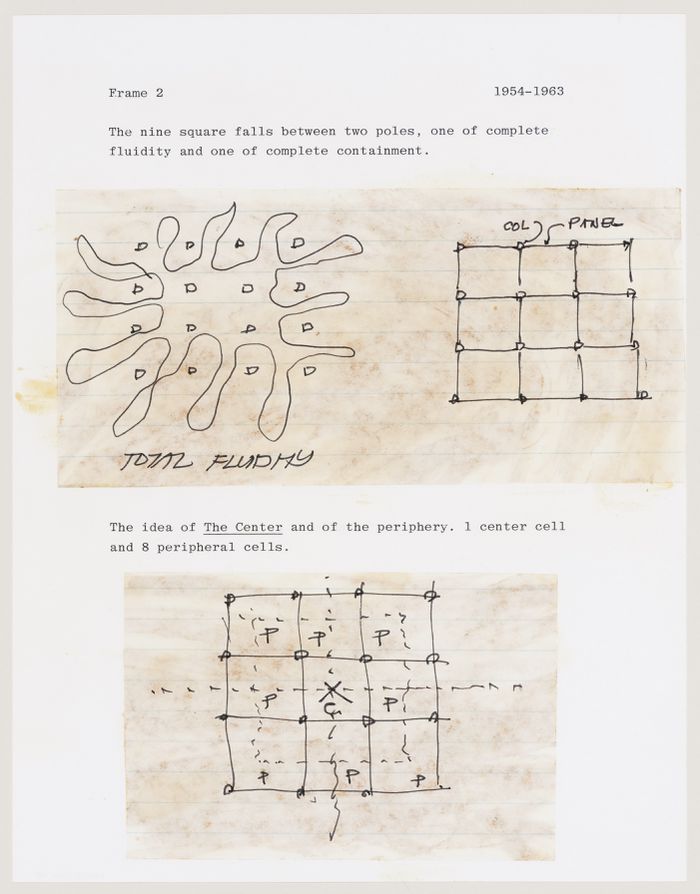 Frame 2 1954-1963
The nine square falls between two poles, one of complete
fluidity and one of complete containment.
COL PANEL
TOTAL FLUIDITY
The idea of The Center and of the periphery. 1 center cell
and 8 peripheral cells.
P P P
P C P
P P P